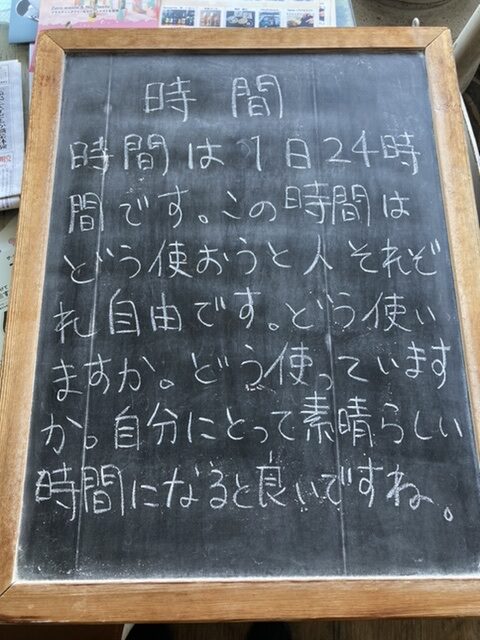 時間
時間は1日24時
間です。この時間は
どう使おうと人それぞ
れ自由です。どう使い
ますか。どう使っています
か。自分にとって素晴らしい
時間になると良いですね。